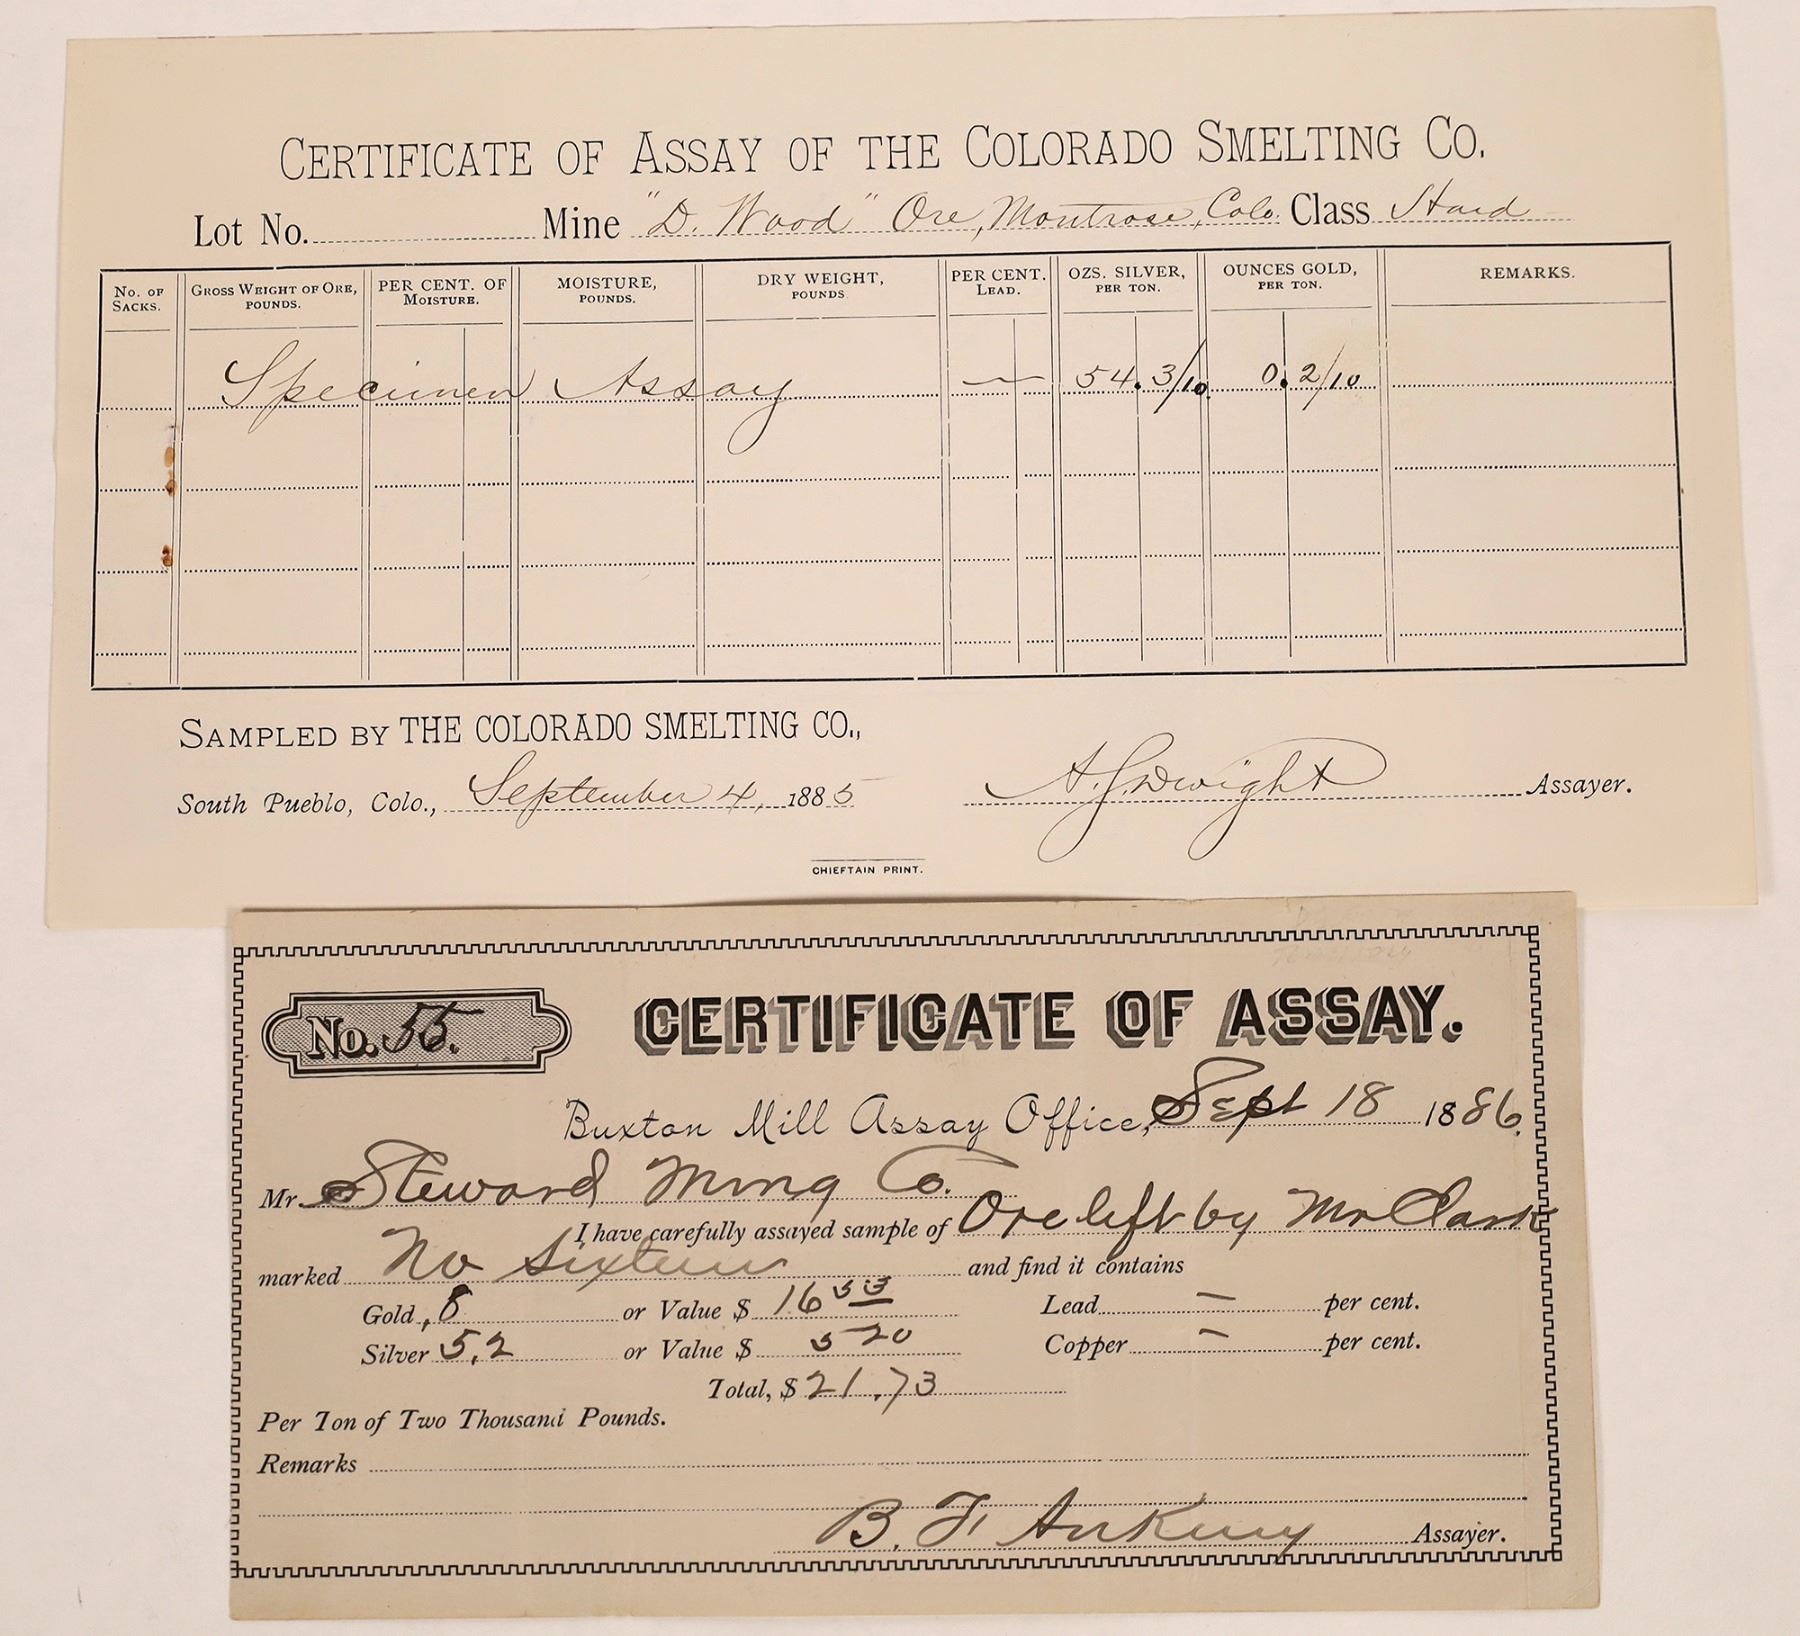 CERTIFICATE OF ASSAY OF THE COLORADO SMELTING CO.
Lot No. Mine "D. Wood" Ore, Montrose, Colo. Class Hard
No. of Sacks. Gross Weight of Ore, pounds. Per Cent. of Moisture. Moisture, pounds. Dry Weight, pounds Per Cent. Lead. Ozs. Silver, per ton. Ounces Gold, per ton. Remarks.
Specimen Assay — 54.3/10 0.2/10
SAMPLED BY THE COLORADO SMELTING CO.,
South Pueblo, Colo., September 4, 1885 A.J. Dwight Assayer.
CHIEFTAIN PRINT.
No. 55. CERTIFICATE OF ASSAY.
Buxton Mill Assay Office, Sept 18 1886.
Mr. Steward Mng Co.
I have carefully assayed sample of Ore left by Mr Clark
marked No Sixteen and find it contains
Gold .8 or Value $ 16 53 Lead — per cent.
Silver 5.2 or Value $ 5 20 Copper — per cent.
Total, $ 21.73
Per Ton of Two Thousand Pounds.
Remarks
B. F. Assayer.